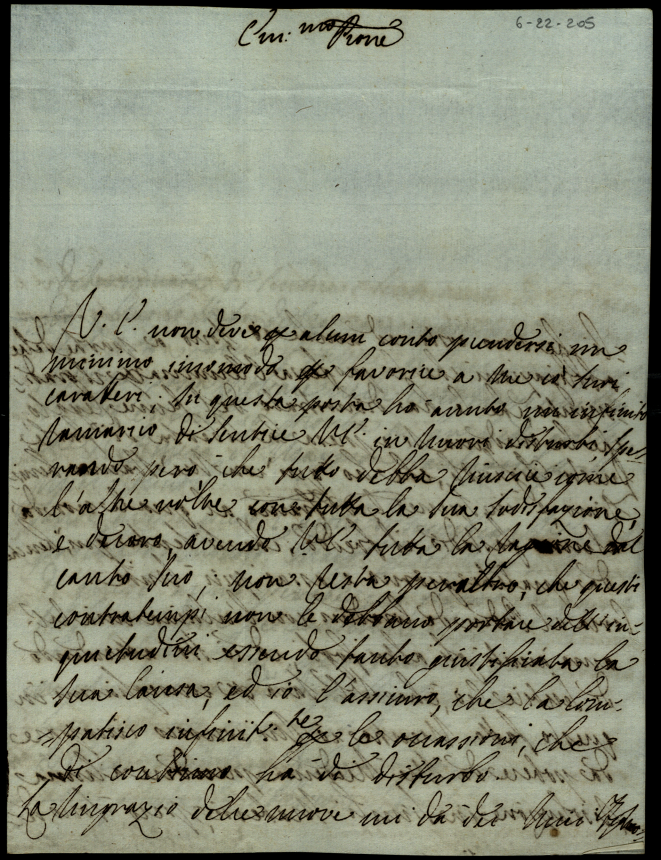 6-22-205
Em:mo Prone
V. E. non deve p alcun conto prendersi un
minimo incomodo p favorire a me co' suoi
caratteri. In questa posta ho avuto un infinito
ramarico di sentire V.E. in nuovi disturbi, spe-
rando però che tutto debba riuscire come
l'altre volte con tutta la sua sodisfazione,
e decoro, avendo V.E. tutta la ragione dal
canto suo, non resta peraltro, che questi
contratempi non le debbano portare dell'in-
quietudini essendo tanto giustificata la
sua causa, ed io l'assicuro, che la com-
patisco infinit:te p le occassioni, che
di continuo ha di disturbo.
La ringrazio delle nuove mi dà dei Suoi